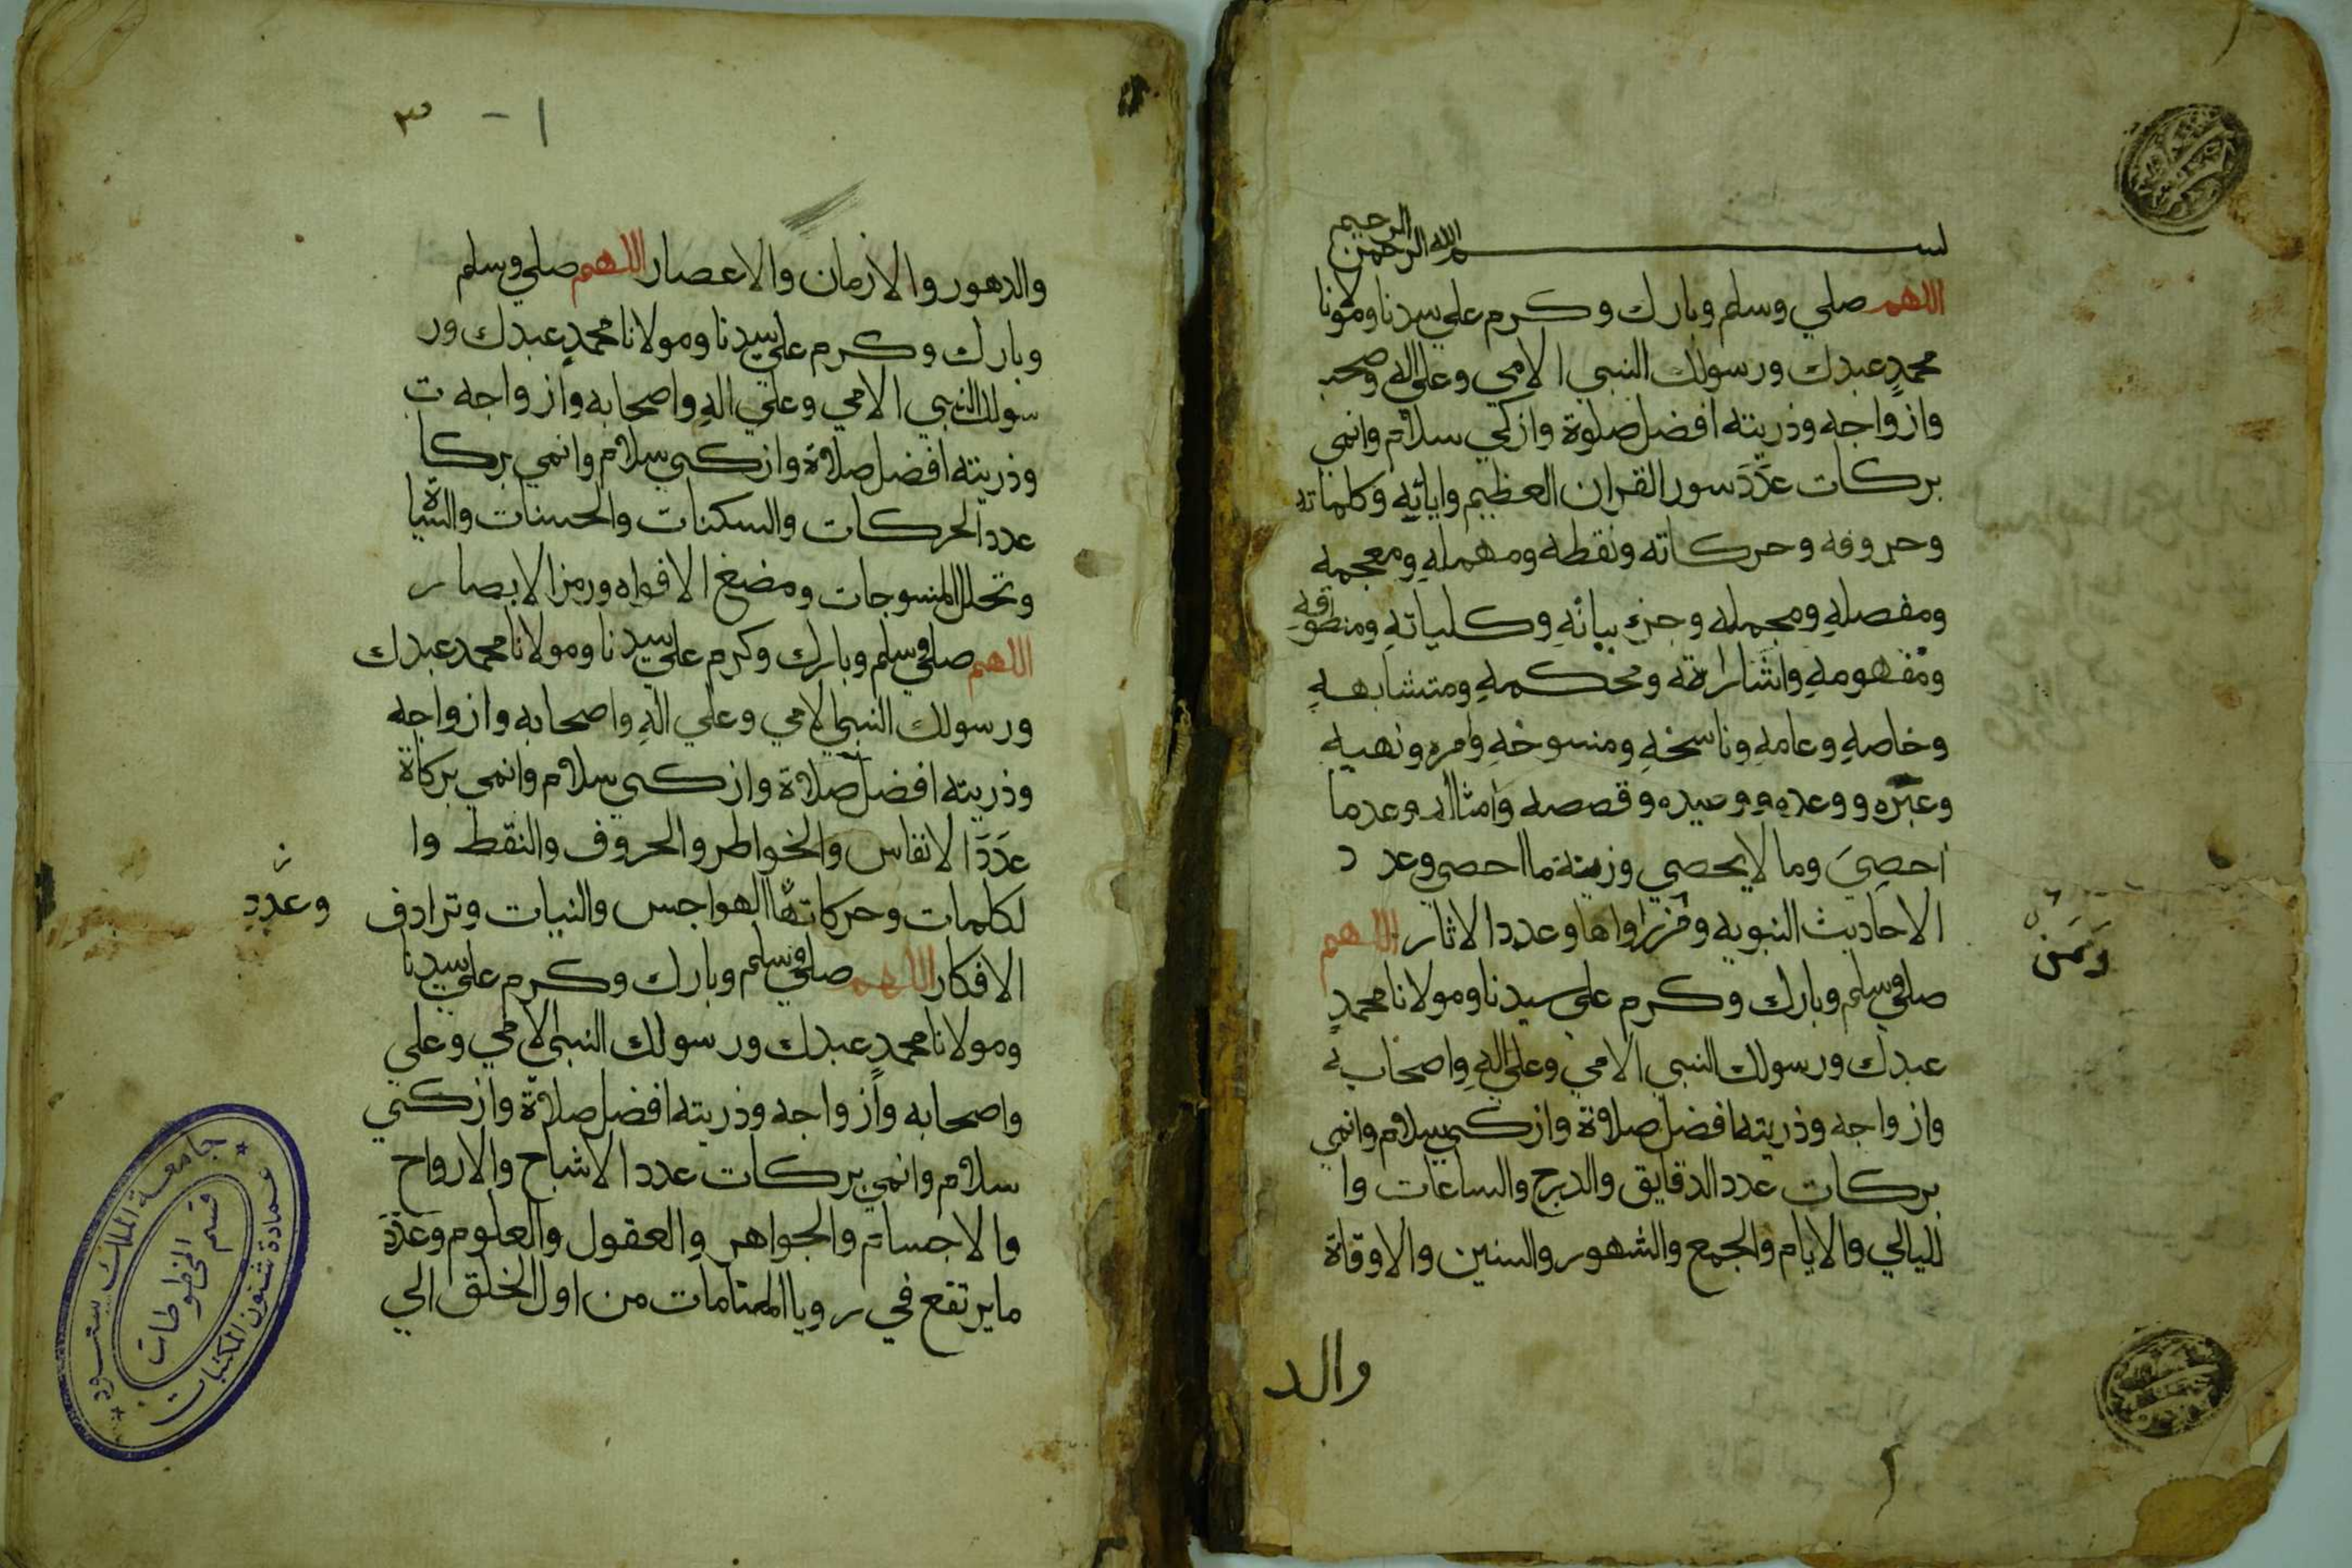 بسم الله الرحمن الرحيم
اللهم صلي وسلم وبارك وكرم علي سيدنا ومولانا
محمدٍ عبدك ورسولك النبي الامي وعلي اله وصحبه
وازواجه وذريته افضل صلوة وازكي سلام وانمي
بركات عدَدَ سور القران العظيم واياتهِ وكلماته
وحروفه وحركاته ونقطه ومهملهِ ومعجمهِ
ومفصلهِ ومجمله وجزءبياتهِ وكلياتهِ ومنطوقهِ
ومفهومهِ واشاراته ومحكمهِ ومتشابههِ
وخاصهِ وعامهِ وناسخهِ ومنسوخهِ وامره ونهيهِ
وعبَرِه ووعدهِ ووعيده وقصصه وامثاله وعدما
احصِيَ وما لا يحصي وزينة ما احصي وعد د
الاحاديث النبويه ومن رواها وعدد الاثار اللهم
ومَنَ
صلي وسلم وبارك وكرم علي سيدنا ومولانا محمدٍ
عبدك ورسولك النبي الامي وعلي الهِ واصحابه
وازواجه وذريته افضل صلاة وازكي سلام وانمي
بركات عدد الدقايق والدرج والساعات وا
لليالي والايام والجمع والشهور والسنين والاوقاة
والد
٣ - ١
والدهور والازمان والاعصار اللهم صلي وسلم
وبارك وكرم علي سيدنا ومولانا محمدٍ عبدك ور
سولك النبي الامي وعلي الهِ واصحابه وازواجه ت
وذريته افضل صلاة وازكي سلام وانمي بركا
عدد الحركات والسكنات والحسنات والسياة
وتخلل المنسوجات ومضغ الافواه ورمز الابصار
اللهم صلي وسلم وبارك وكرم علي سيدنا ومولانا محمد عبدك
ورسولك النبي الامي وعلي الهِ واصحابه وازواجه
وذريته افضل صلاة وازكي سلام وانمي بركاة
عدَدَ الانفاس والخواطر والحروف والنقط وا
لكلمات وحركاتها الهواجس والنيات وترادف
وعدد
الافكار اللهم صلي وسلم وبارك وكرم علي سيدنا
ومولانا محمدٍ عبدك ورسولك النبي الامي وعلي
واصحابه وازواجه وذريته افضل صلاة وازكي
سلام وانمي بركات عدد الاشباح والارواح
والاجسام والجواهر والعقول والعلوم وعدَدَ
ما يرتفع في رويا المنامات من اول الخلق الي
جامعة الملك سعود
قسم المخطوطات
عمادة شئون المكتبات